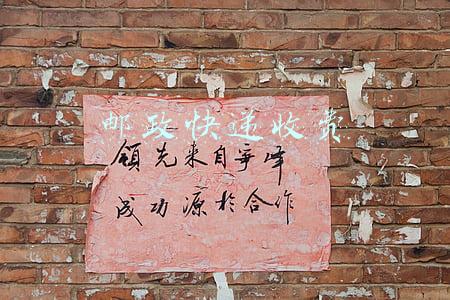 邮政快递收费
领先来自争峰
成功源於合作